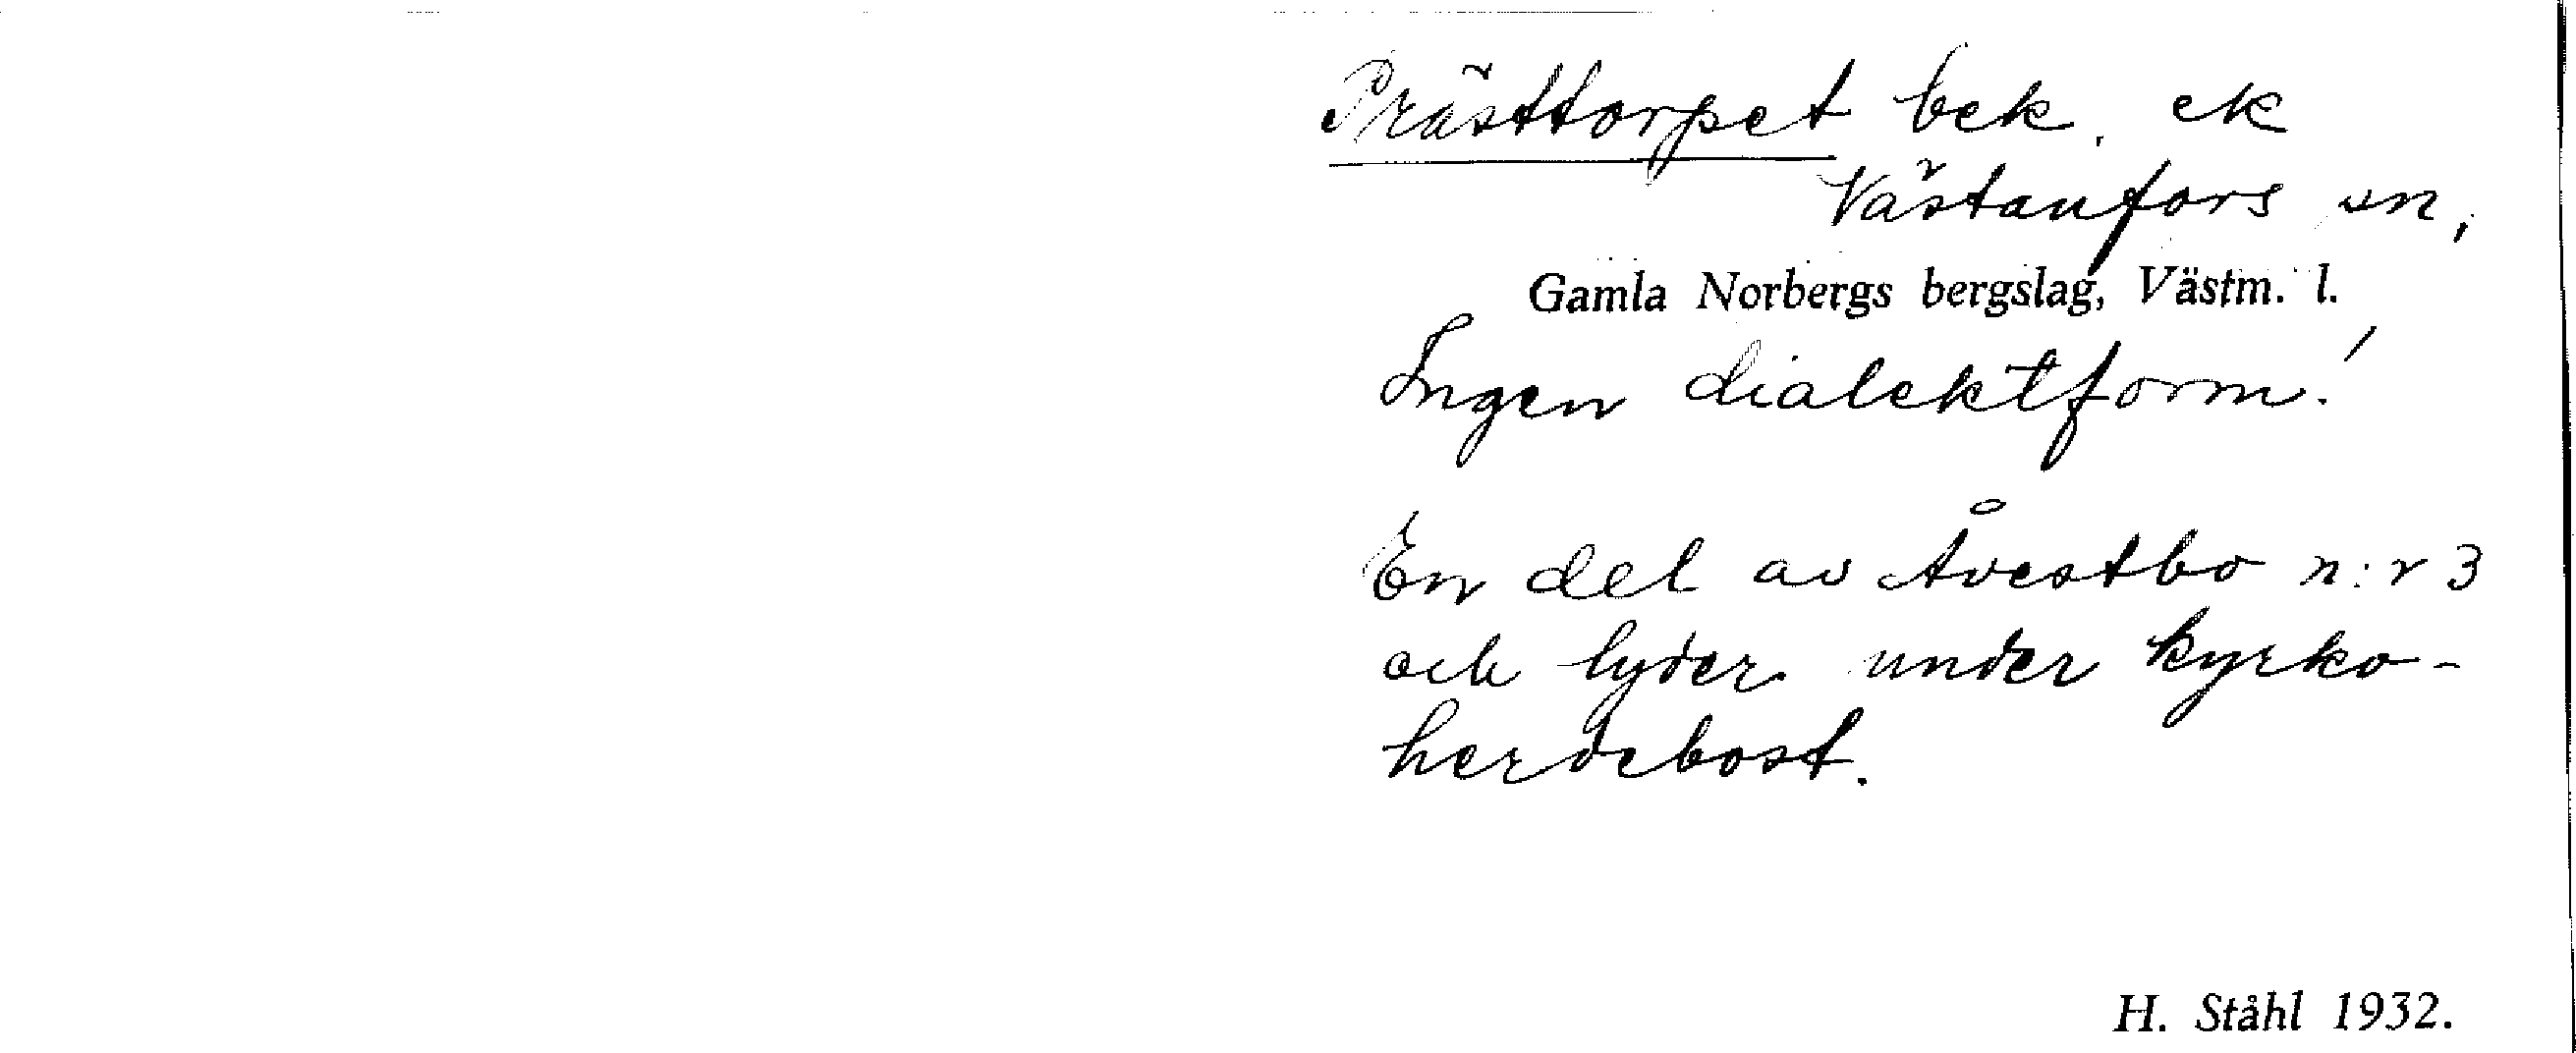 Prästtorpet bek. ek
Västanfors sn,
Gamla Norbergs bergslag, Västm. l.
Ingen dialektform!
En del av Åvestbo n:r 3
och lyder under kyrko-
herdebost.
H. Ståhl 1932.